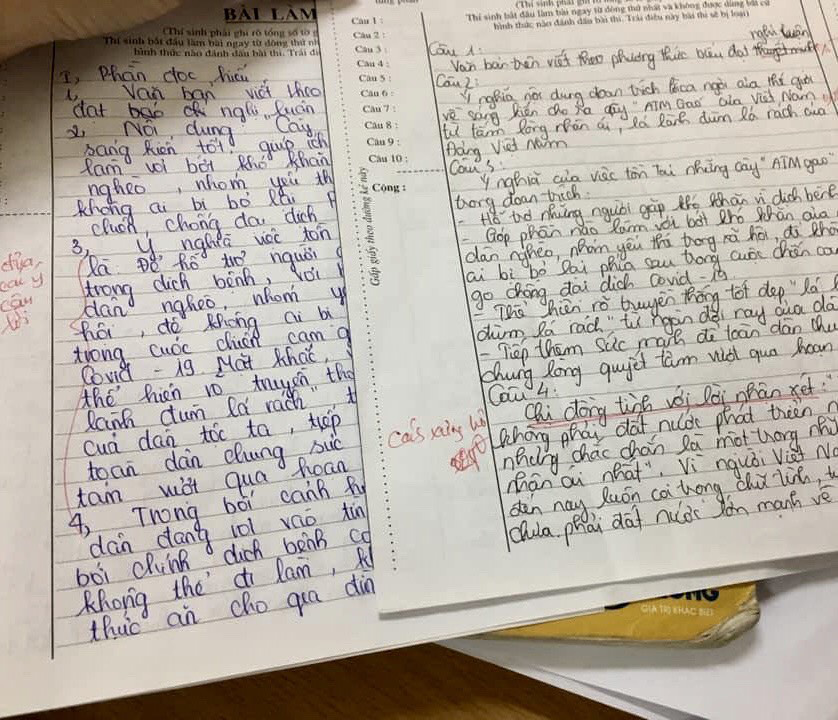 BÀI LÀM
(Thí sinh phải ghi rõ tổng số tờ g
Thí sinh bắt đầu làm bài ngay từ dòng thứ nh
hình thức nào đánh dấu bài thi. Trái đi
I, Phần đọc hiểu
1, Văn bản viết theo
đạt báo chí nghị luận
2, Nội dung: Cây
sáng kiến tốt, giúp ích
làm vơi bớt khó khăn
nghèo, nhóm yếu th
không ai bị bỏ lại p
chiến chống đại dịch
3, Ý nghĩa việc tồn
là: Để hỗ trợ người g
trong dịch bệnh, vơi
dân nghèo, nhóm y
hội, để không ai bị
trong cuộc chiến cam g
Covid - 19. Mặt khác,
thể hiện rõ truyền thố
lành đùm lá rách", t
của dân tộc ta, tiếp
toàn dân chung sức
tâm vượt qua hoàn
4, Trong bối cảnh h
dân đang rơi vào tìn
bởi chính dịch bệnh co
không thể đi làm, k
thức ăn cho gia đìn
câu
Câu 1 :
Câu 2 :
Câu 3 :
Câu 4 :
Câu 5 :
Câu 6 :
Câu 7 :
Câu 8 :
Câu 9 :
Câu 10 :
Cộng :
Gấp giấy theo đường kẻ này
(Thí sinh phải ghi rõ tổng số
Thí sinh bắt đầu làm bài ngay từ dòng thứ nhất và không được dùng bất cứ
hình thức nào đánh dấu bài thi. Trái điều này bài thi sẽ bị loại)
nghị luận
Câu 1:
Văn bản trên viết theo phương thức biểu đạt
Câu 2:
Ý nghĩa nội dung đoạn trích là ca ngợi của thế giới
về sáng kiến cho ra cây "ATM Gạo" của Việt Nam
từ tấm lòng nhân ái, lá lành đùm lá rách của
Đảng Việt Nam
Câu 3:
Ý nghĩa của việc tồn tại những cây "ATM gạo"
trong đoạn trích:
- Hỗ trợ những người gặp khó khăn vì dịch bệnh
- Góp phần nào làm vơi bớt khó khăn của
dân nghèo, nhóm yếu thế trong xã hội, để khô
ai bị bỏ lại phía sau trong cuộc chiến ca
go chống đại dịch Covid - 19
- Thể hiện rõ truyền thống tốt đẹp "lá l
đùm lá rách" từ ngàn đời nay của dâ
- Tiếp thêm sức mạnh để toàn dân chu
chung lòng quyết tâm vượt qua hoàn
Câu 4:
Chị đồng tình với lời nhận xét: "
không phải đất nước phát triển n
nhưng chắc chắn là một trong nhữ
nhân ái nhất". Vì người Việt Na
đến nay luôn coi trọng chữ tình, t
chưa phải đất nước lớn mạnh về
GIÁ TRỊ KHÁC BIỆT